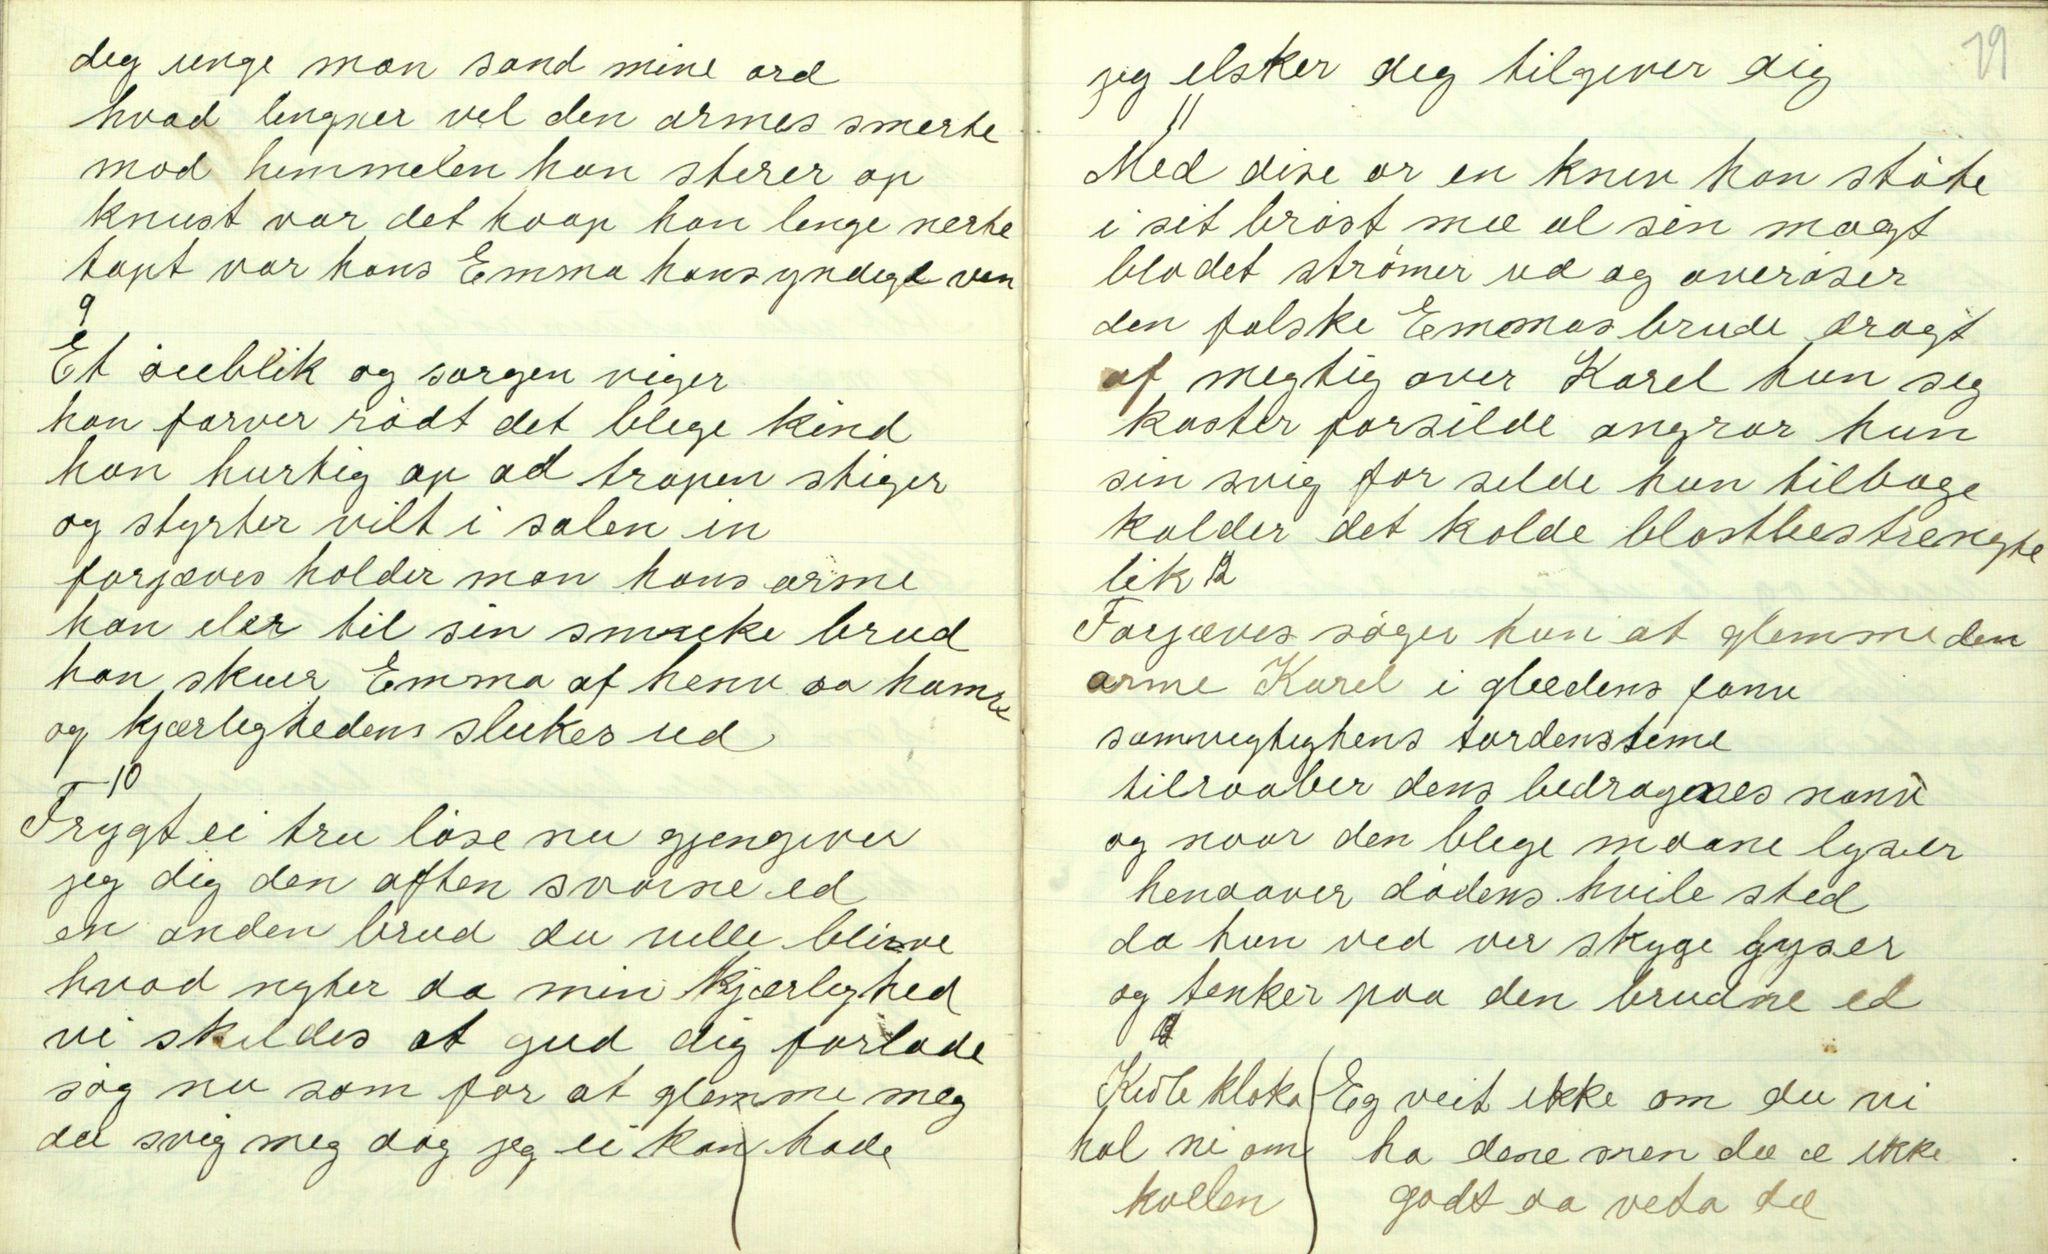 deg unge man sand mine ord
hvad lengner vel den armes smerte
mod himmelen han sterer op
knust var det haap han lenge nerte
tapt var hans Emma hans yndege ven
9
Et öieblik og sorgen viger
han farver rödt det blege kind
han hurtig op ad trapen stiger
og styrter vilt i salen in
forjæves holder man hans arme
han eler til sin smukke brud
han skuer Emma af henv aa hamre
og kjærleghedens slukes ud
10
Frygt ei tru löse nu gjengiver
jeg dig den aften svorne ed
en anden brud du ville blive
hvad nyter da min kjærleghed
vi skildes at gud dig forlade
søg nu som før at glemme meg
du svig meg dog jeg ei kan hade
19
jeg elsker deg tilgiver dig
11
Med dise or en kniv han stöte
i sit bröst mæ al sin magt
blodet strömer ud og overöser
den falske Emmas brude dragt
af megtig over Karel hun seg
kaster forsilde angrar hun
sin svig for silde hun tilbage
kalder det kolde blostbestrengte
lik 12
Forjæves söger hun at glemme den
arme Karel i glædens favn
samvegtighens tordensteme
tilraaber dens bedragenes navn
og naar den blege maane lyser
henaaver dödens hvile sted
da hun ved ver skyge gyser
og tenker paa den brudne ed
Kidle kloka
hal ni om
kvællen
Eg veit ikke om du vi
ha dene men dæ æ ikke
godt aa veta dæ